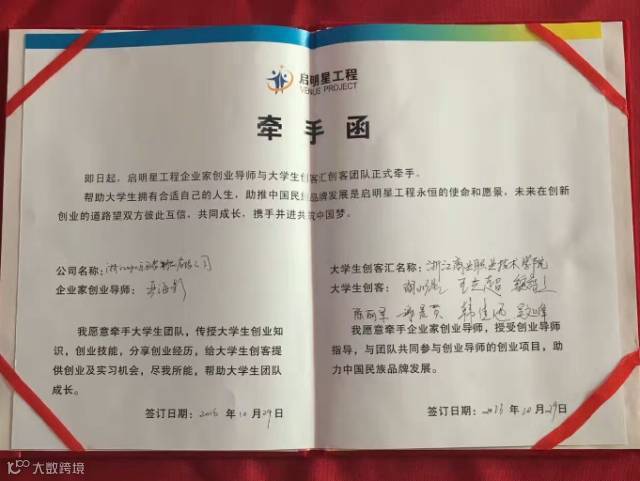 启明星工程
VENUS PROJECT
牵手函
即日起,启明星工程企业家创业导师与大学生创客汇创客团队正式牵手。
帮助大学生拥有合适自己的人生,助推中国民族品牌发展是启明星工程永恒的使命和愿景,未来在创新
创业的道路望双方彼此互信,共同成长,携手并进共筑中国梦。
公司名称:
企业家创业导师:
我愿意牵手大学生团队,传授大学生创业知
识,创业技能,分享创业经历,给大学生创客提
供创业及实习机会,尽我所能,帮助大学生团队
成长。
签订日期: 年 10 月 29 日
大学生创客汇名称:浙江商业职业技术学院
大学生创客: 王志超
我愿意牵手企业家创业导师,授受创业导师
指导,与团队共同参与创业导师的创业项目,助
力中国民族品牌发展。
签订日期: 年 10 月 29 日
大数跨境